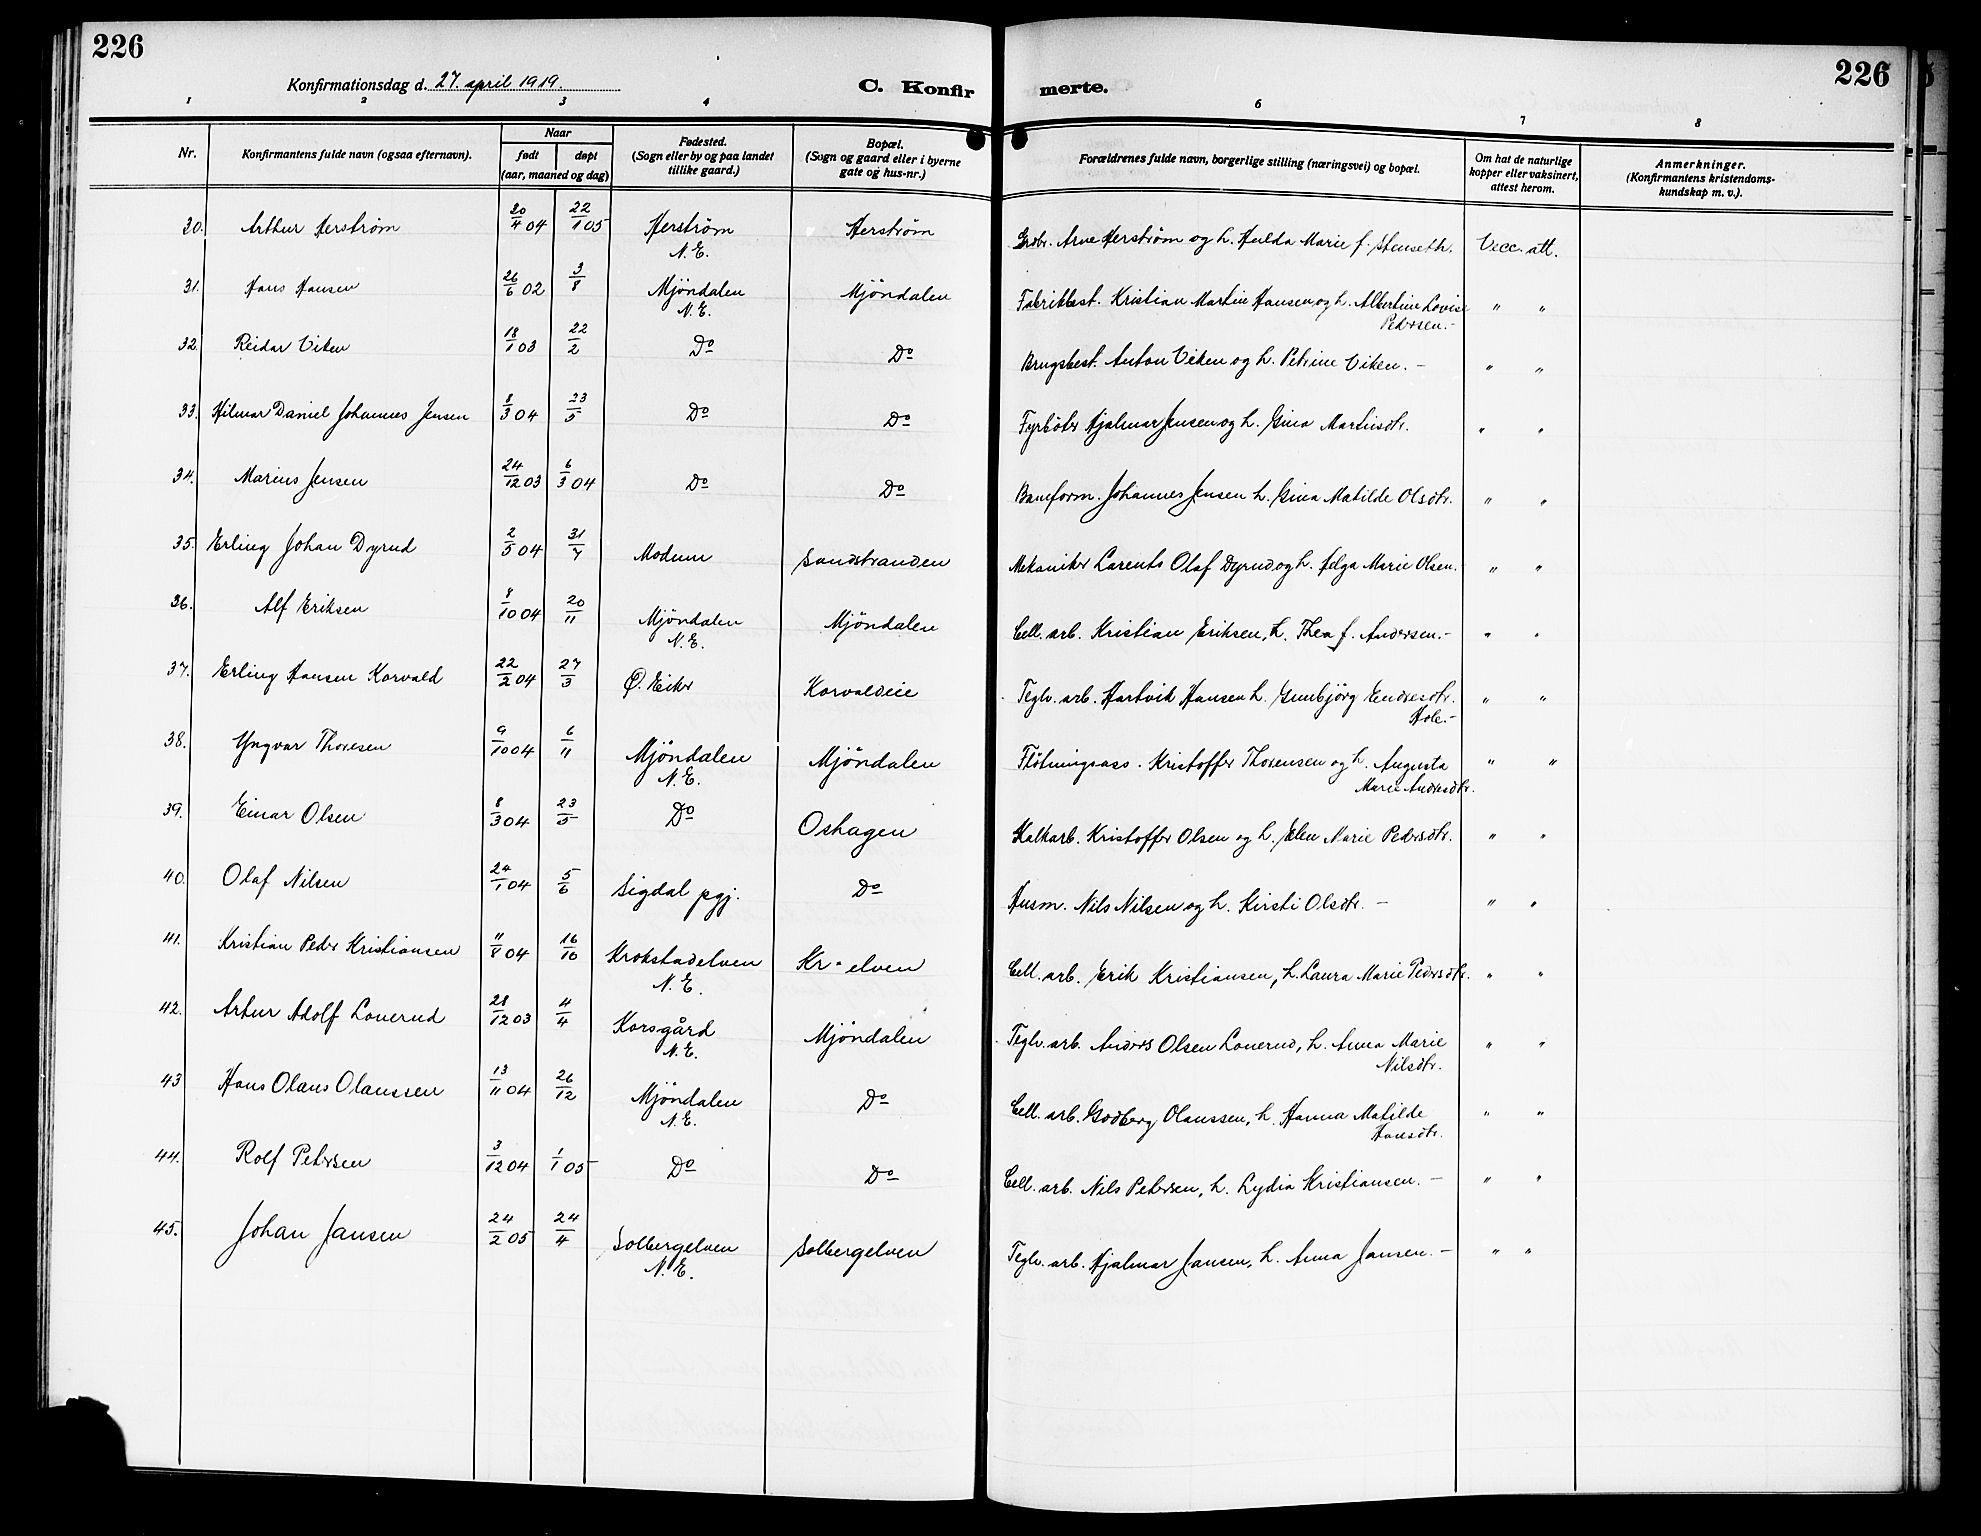 226
226
Konfirmationsdag d. 27. april 1919.
C. Konfir
merte.
1 2 3 4 5 6 7 8
Nr.
Konfirmantens fulde navn (ogsaa efternavn).
Naar
født
døpt
(aar, maaned og dag)
Fødested.
(Sogn eller by og paa landet
tillike gaard.)
Bopæl.
(Sogn og gaard eller i byerne
gate og hus-nr.)
Forældrenes fulde navn, borgerlige stilling (næringsvei) og bopæl.
Om hat de naturlige
kopper eller vaksinert,
attest herom.
Anmerkninger.
(Konfirmantens kristendoms-
kundskap m. v.).
30. Arthur Herstrøm 20/4 04 22/1 05 Herstrøm Herstrøm Grdbr. Arne Herstrøm og h. Hulda Marie f. Stenseth. Vacc. att.
N. E.
31. Hans Hansen 26/6 02 3/8 Mjöndalen Mjöndalen Fabrikbest. Kristian Martin Hansen og h. Albertine Lovise " "
N. E. Pedersen.-
32. Reidar Viken 18/1 03 22/2 Do Do Brugsbest. Anton Viken og h. Petrine Viken. - " "
33. Hilmar Daniel Johannes Jensen 8/3 04 23/5 Do Do Fyrböter Hjalmar Jensen og h. Gina Martinsdtr. " "
34. Marius Jensen 24/12 03 6/3 04 Do Do Baneform. Johannes Jensen h. Gina Matilde Olsdtr. " "
35. Erling Johan Dyrud 2/5 04 31/7 Modum Sandstranden Mekaniker Larents Olaf Dyrud og h. Helga Marie Olsen. " "
36. Alf Eriksen 8/10 04 20/11 Mjöndalen Mjöndalen Cell. arb. Kristian Eriksen, h. Thea f. Andersen.- " "
N. E.
37. Erling Hansen Korvald 22/2 04 27/3 Ö. Eiker Korvaldeie Teglv. arb. Hartvik Hansen h. Gunbjörg Endresdtr. " "
Hole.-
38. Yngvar Thoresen 9/10 04 6/11 Mjöndalen Mjöndalen Flötningsass. Kristoffer Thorensen og h. Augusta " "
N. E. Marie Andresdtr.
39. Einar Olsen 8/3 04 23/5 Do Oshagen Kalkarb. Kristoffer Olsen og h. Elen Marie Pedersdtr. " "
40. Olaf Nilsen 24/1 04 5/6 Sigdal pgj. Do Husm. Nils Nilsen og h. Kirsti Olsdtr. - " "
41. Kristian Peder Kristiansen 11/8 04 16/10 Krokstadelven Kr-elven Cell. arb. Erik Kristiansen, h. Laura Marie Pedersdtr. " "
N. E.
42. Artur Adolf Lonerud 28/12 03 4/4 Korsgård Mjöndalen Teglv. arb. Anders Olsen Lonerud, h. Anna Marie " "
N. E. Nilsdtr.
43 Hans Olaus Olaussen 13/11 04 26/12 Mjöndalen Do Cell. arb. Godberg Olaussen, h. Hanna Matilde " "
N. E. Hansdtr.
44. Rolf Petersen 3/12 04 1/1 05 Do Do Cell. arb. Nils Petersen, h. Lydia Kristiansen. - " "
45. Johan Jansen 24/2 05 24/4 Solbergelven Solbergelven Teglv. arb. Hjalmar Jansen, h. Anna Jansen. - " "
N. E.